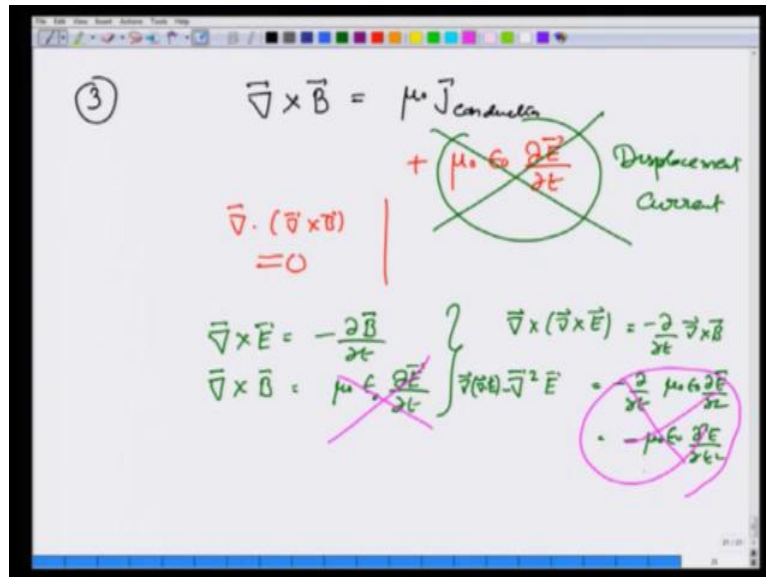 File Edit View Insert Actions Tools Help
③ ∇⃗ × B⃗ = μ₀ J⃗conduction
+ μ₀ ε₀ ∂E⃗/∂t Displacement
Current
∇⃗ · (∇⃗ × B⃗)
= 0
∇⃗ × E⃗ = - ∂B⃗/∂t } ∇⃗ × (∇⃗ × E⃗) = -∂/∂t ∇⃗ × B⃗
∇⃗ × B⃗ = μ₀ ε₀ ∂E⃗/∂t ∇⃗(∇⃗·E) - ∇⃗² E⃗ = -∂/∂t μ₀ ε₀ ∂E/∂t
= -μ₀ ε₀ ∂²E/∂t²